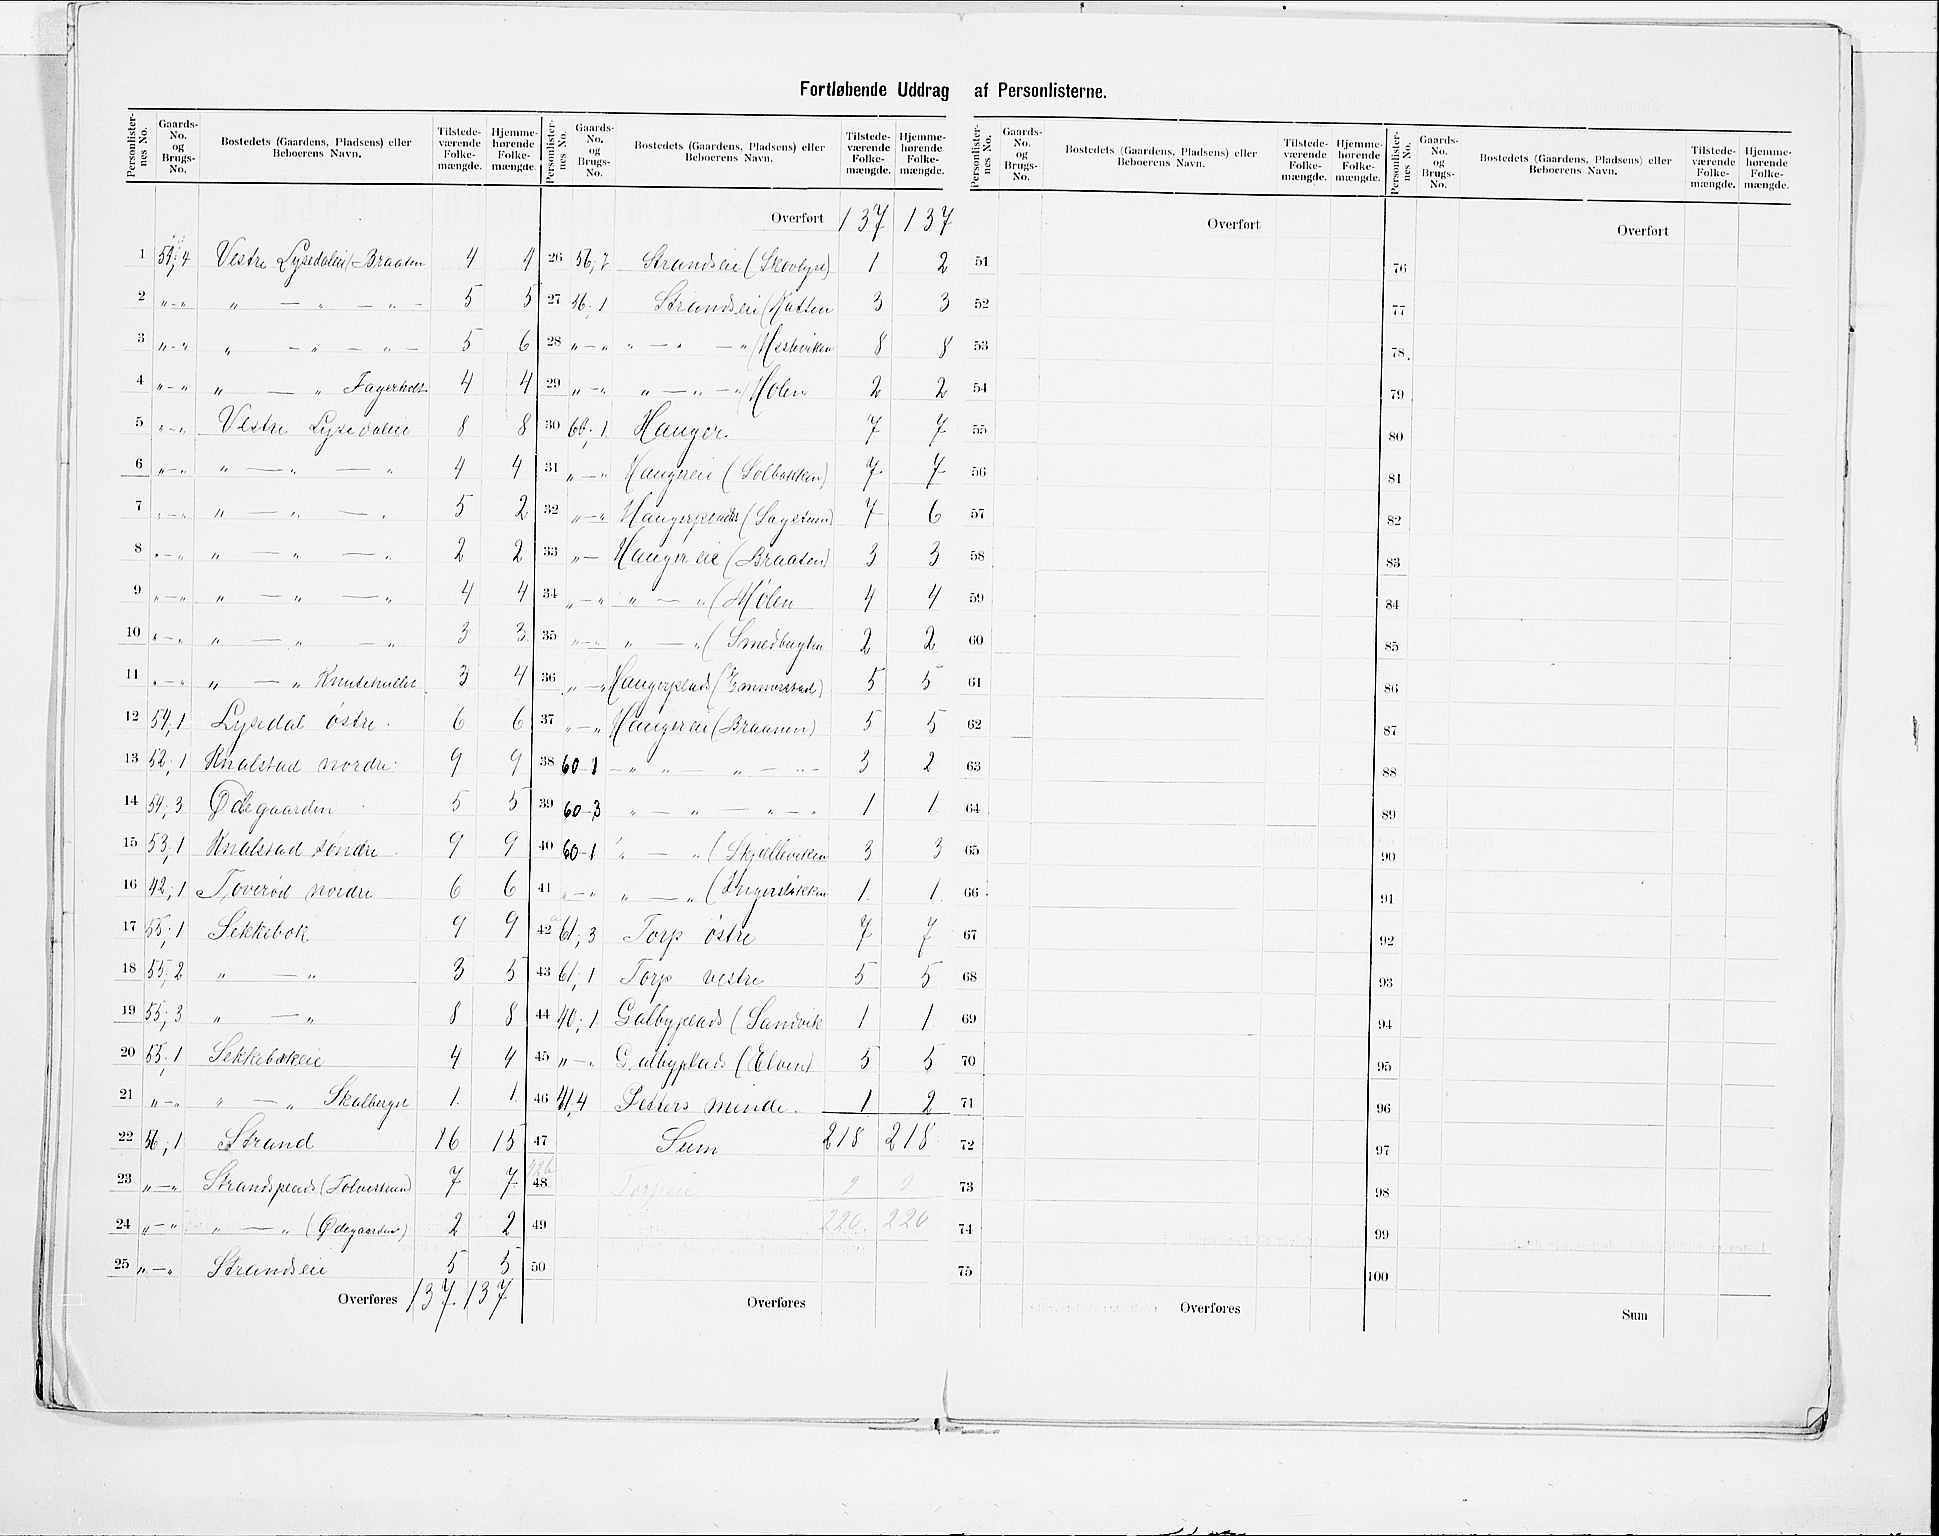 Fortløbende Uddrag af Personlisterne.
Personlister-nes No. Gaards-No. og Brugs-No. Bostedets (Gaardens, Pladsens) eller Beboerens Navn. Tilstede-værende Folke-mængde. Hjemme-hørende Folke-mængde.
1 54, 4 Vestre Lysedaleie/Braaten 4 4
2 „–„ „ — „ — „ – 5 5
3 „–„ „ – „ — „ – 5 6
4 „–„ „ — „ Fagerholt 4 4
5 „–„ Vestre Lysedaleie 8 8
6 „–„ „ — „ — „ 4 4
7 „–„ „ — „ — „ 5 2
8 „–„ „ — „ — „ 2 2
9 „–„ „ — „ — „ 4 4
10 „–„ „ — „ — „ 3 3
11 „–„ „ — „ Knutehullet 3 4
12 54, 1 Lysedal østre. 6 6
13 52, 1 Knalstad nordre. 9 9
14 54, 3 Ødegaarden 5 5
15 53, 1 Knalstad søndre 9 9
16 42, 1 Toverød nordre 6 6
17 55, 1 Sekkebæk 9 9
18 55, 2 „ — „ 3 5
19 55, 3 „ — „ 8 8
20 55, 1 Sekkebækeie 4 4
21 „–„ „ — „ Skalberget 1 1
22 56, 1 Strand 16 15
23 „–„ Strandsplads (Tolverstuen) 7 7
24 „–„ „ — „ (Ødegaarden) 2 2
25 „–„ Strandseie 5 5
Overføres 137. 137
Personlister-nes No. Gaards-No. og Brugs-No. Bostedets (Gaardens, Pladsens) eller Beboerens Navn. Tilstede-værende Folke-mængde. Hjemme-hørende Folke-mængde.
Overført 137 137
26 56, 2 Strandseie (Skovlyst) 1 2
27 56, 1 Strandseie (Natten 3 3
28 „–„ „ – „ – „ (Hestviken 8 8
29 „–„ „ – „ – „ (Holen 2 2
30 60, 1 Hauger. 7 7
31 „–„ Haugereie (Solbakken) 7 7
32 „–„ Haugerplads (Sagstuen) 7 6
33 „– Haugereie (Braaten) 3 3
34 „–„ „ — „ (Mølen 4 4
35 „–„ „ — „ (Smedbugten 2 2
36 „–„ Haugerplads (Emmerstad) 5 5
37 „–„ Haugereie (Braaten) 5 5
38 60–1 – „ „ – „ – „ – 3 2
39 60–3 „ – „ — „ – „ 1 1
40 60–1 „ — „ (Skjælleviken 3 3
41 „–„ „ — „ 1 1
42 a 61, 3 Torp østre 7 7
43 61, 1 Torp vestre 5 5
44 40, 1 Galbyplads (Sandvik 1 1
45 „–„ Galbyplads (Elven) 5 5
46 41, 4 Petters minde. 1 2
47 Sum 218 218
42b
48 Torpeie 2 2
49 220. 220
50
Overføres
Personlister-nes No. Gaards-No. og Brugs-No. Bostedets (Gaardens, Pladsens) eller Beboerens Navn. Tilstede-værende Folke-mængde. Hjemme-hørende Folke-mængde.
Overført
51
52
53
54
55
56
57
58
59
60
61
62
63
64
65
66
67
68
69
70
71
72
73
74
75
Overføres
Personlister-nes No. Gaards-No. og Brugs-No. Bostedets (Gaardens, Pladsens) eller Beboerens Navn. Tilstede-værende Folke-mængde. Hjemme-hørende Folke-mængde.
Overført
76
77
78
79
80
81
82
83
84
85
86
87
88
89
90
91
92
93
94
95
96
97
98
99
100
Sum